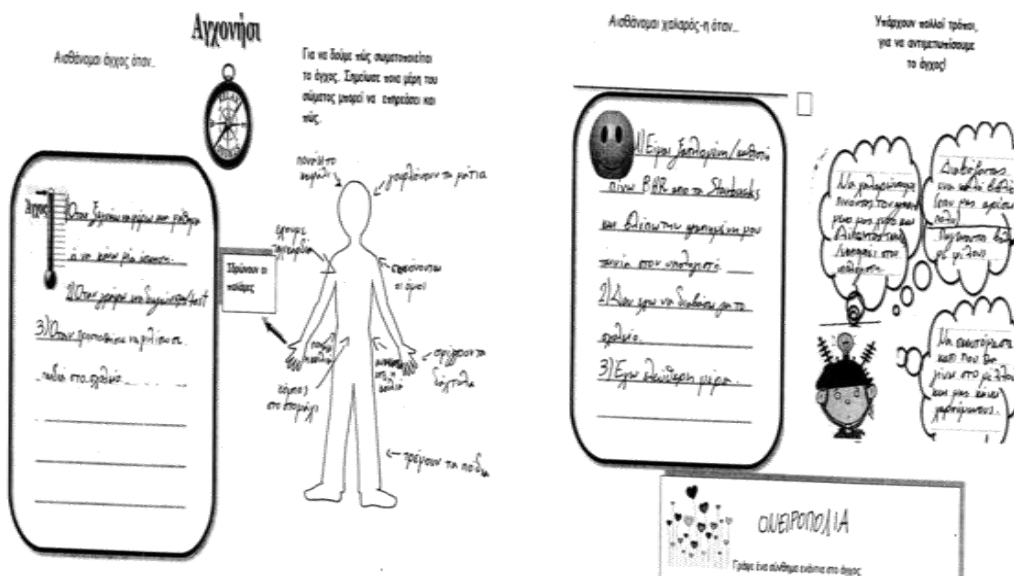 Αγχονήσι
Αισθάνομαι άγχος όταν...
Για να δούμε πώς σωματοποιείται
το άγχος. Σημείωσε ποια μέρη του
σώματος μπορεί να επηρεάσει και
πώς.
Άγχος
Όταν
μάθημα
να κάνω
2) Όταν γράφω διαγώνισμα/test
3) Όταν να μιλήσω σε
παιδιά στο σχολείο.
Ιδρώνουν οι
παλάμες
πονάει το
κεφάλι
γουρλώνουν τα μάτια
έχουμε
ταχυκαρδία
οι ώμοι
κόμπος
στο στομάχι
σφίγγουν τα
δάχτυλα
τρέμουν τα πόδια
Αισθάνομαι χαλαρός-η όταν...
1) Είμαι ξαπλωμένη/καθιστή
πίνω από τα Starbucks
και βλέπω την αγαπημένη μου
ταινία στον υπολογιστή.
2) Δεν έχω να διαβάσω για το
σχολείο.
3) Έχω ελεύθερη μέρα.
Υπάρχουν πολλοί τρόποι,
για να αντιμετωπίσουμε
το άγχος!
Να χαλαρώσουμε
πίνοντας τον αγαπη-
μένο μας
Διαβάζοντας
ένα καλό βιβλίο
που μας αρέσει
πολύ
με φίλους
Να σκεφτόμαστε
κάτι που θα
γίνει στο μέλλον
και μας κάνει
χαρούμενους.
ΟΝΕΙΡΟΠΟΛΙΑ
Γράψε ένα σύνθημα ενάντια στο άγχος